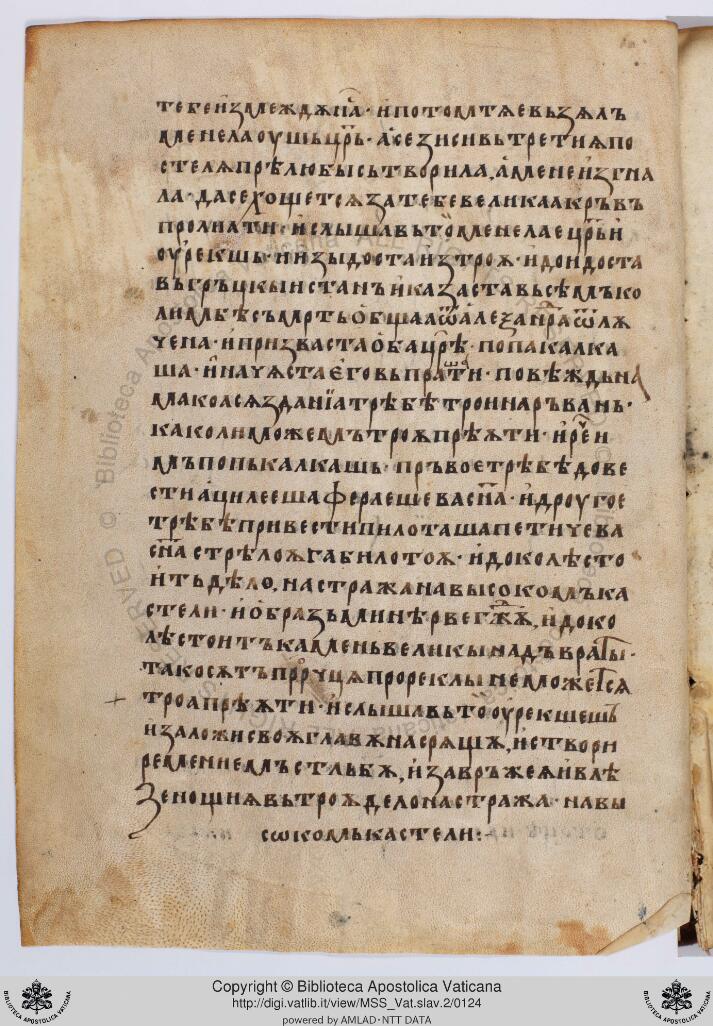 тебе и҆змеждѫ на҃ · и҆ потомтѧ е вьзѧлъ
менелаоушь цр҃ь · а҆ се зиси вь третиѧ по
стелѧ прѣлюбы сътворила, а҆ мене и҆згна
ла · да се хощет сѧ за тебе великаа кръвъ
пролиꙗти · и҆ слышавь то҆ менелае цр҃ь и҆
оурекшь · и҆ изыдоста из троѧ · и҆ доидоста
въ гръцкыи станъ и҆ казаста вьсѣмъ ко
лимбѣ съмрть о҆бщаа ѿ а҆леѯандра ѿлѫ
чена · и҆ призваста о҆ба цр҃ѣ · попа калка
ша · и҆ начѧста е҆го въпрашати · повѣждь на
ма кои сѧ зданїа трѣбѣ трои на ръвань ·
како ли можемъ троѫ прѣѧти · и҆ рече и
мъ попь калкашь · пръвое трѣбѣ дове
сти ацилееша ферлешева сн҃а · и҆ другое
трѣбѣ привести пилоташа петичева
сн҃а стрѣлоѧ габилотоѧ · и҆ доколѣ сто
и҆ть дѣло, на стража на высокомъ ка
стели · и҆ о҆бразь минѣрве гж҃ѫ, и҆ доко
лѣ стоитъ камень великы надъ враты ·
тако сѫтъ прⷪ҇руцѧ прореклы не может сѧ
троа прѣѧти · и҆ слышавь то оурекшешь
и заложи своѧ главѫ на срѧщѫ, и҆ створи
ремение мъ стльбѫ, и҆ завръже ѧ и҆ влѣ
зе нощиѧ вь троѫ дело на стража · на вы
сѡкомь кастели :~
Copyright © Biblioteca Apostolica Vaticana
http://digi.vatlib.it/view/MSS_Vat.slav.2/0124
powered by AMLAD · NTT DATA